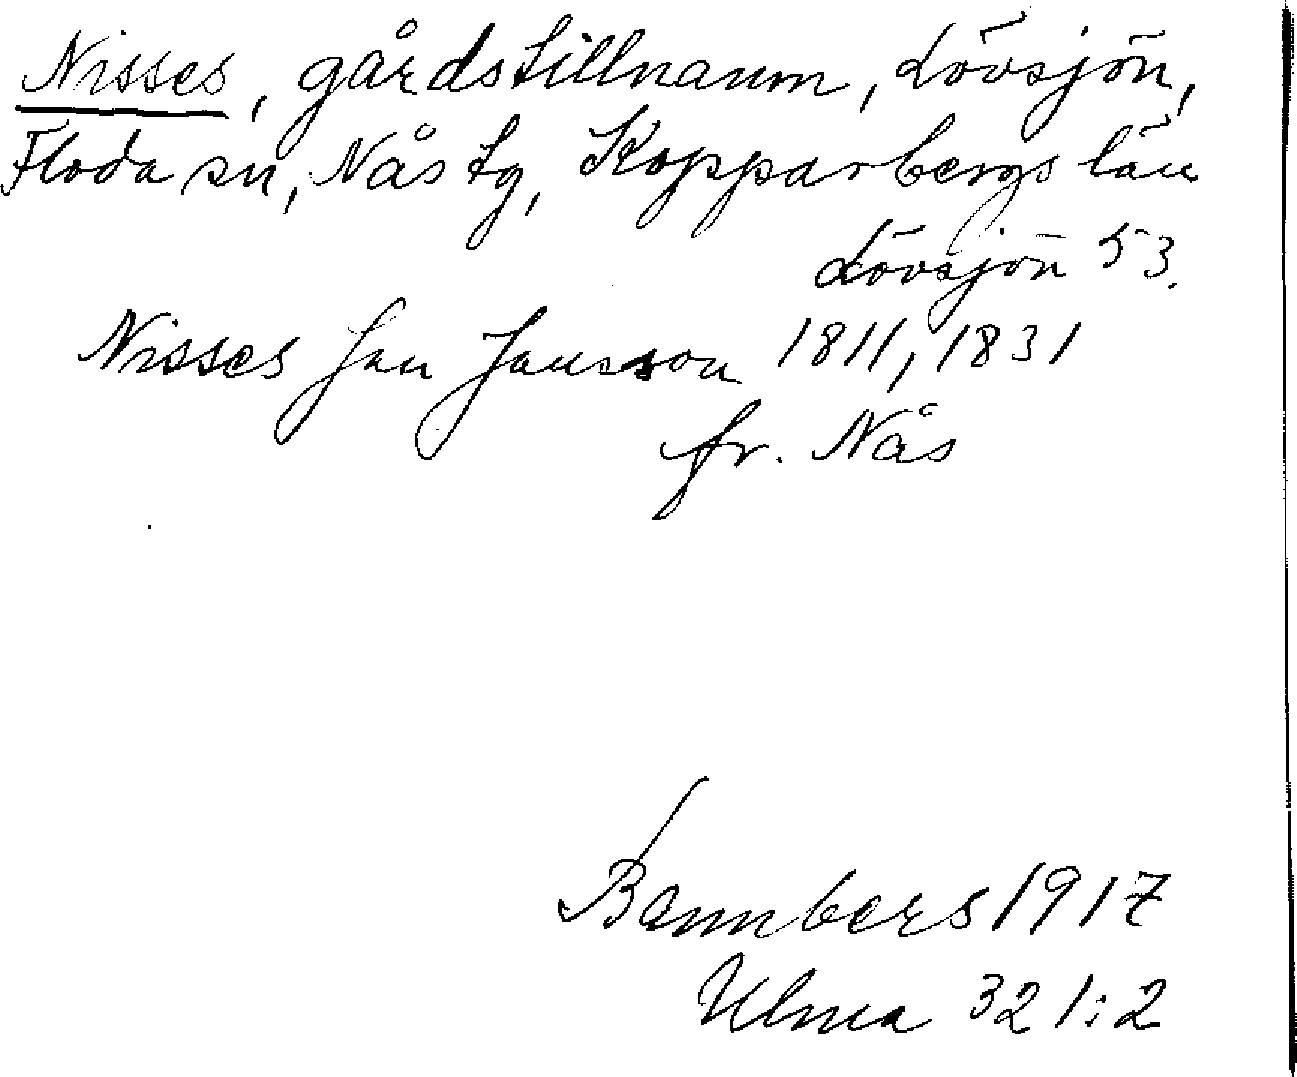 Nisses, gårdstillnamn, Lövsjön,
Floda sn, Nås tg, Kopparbergs län
Lövsjön 53.
Nisses Jan Jansson 1811, 1831
fr. Nås
Bannbers 1917
Ulma 321:2